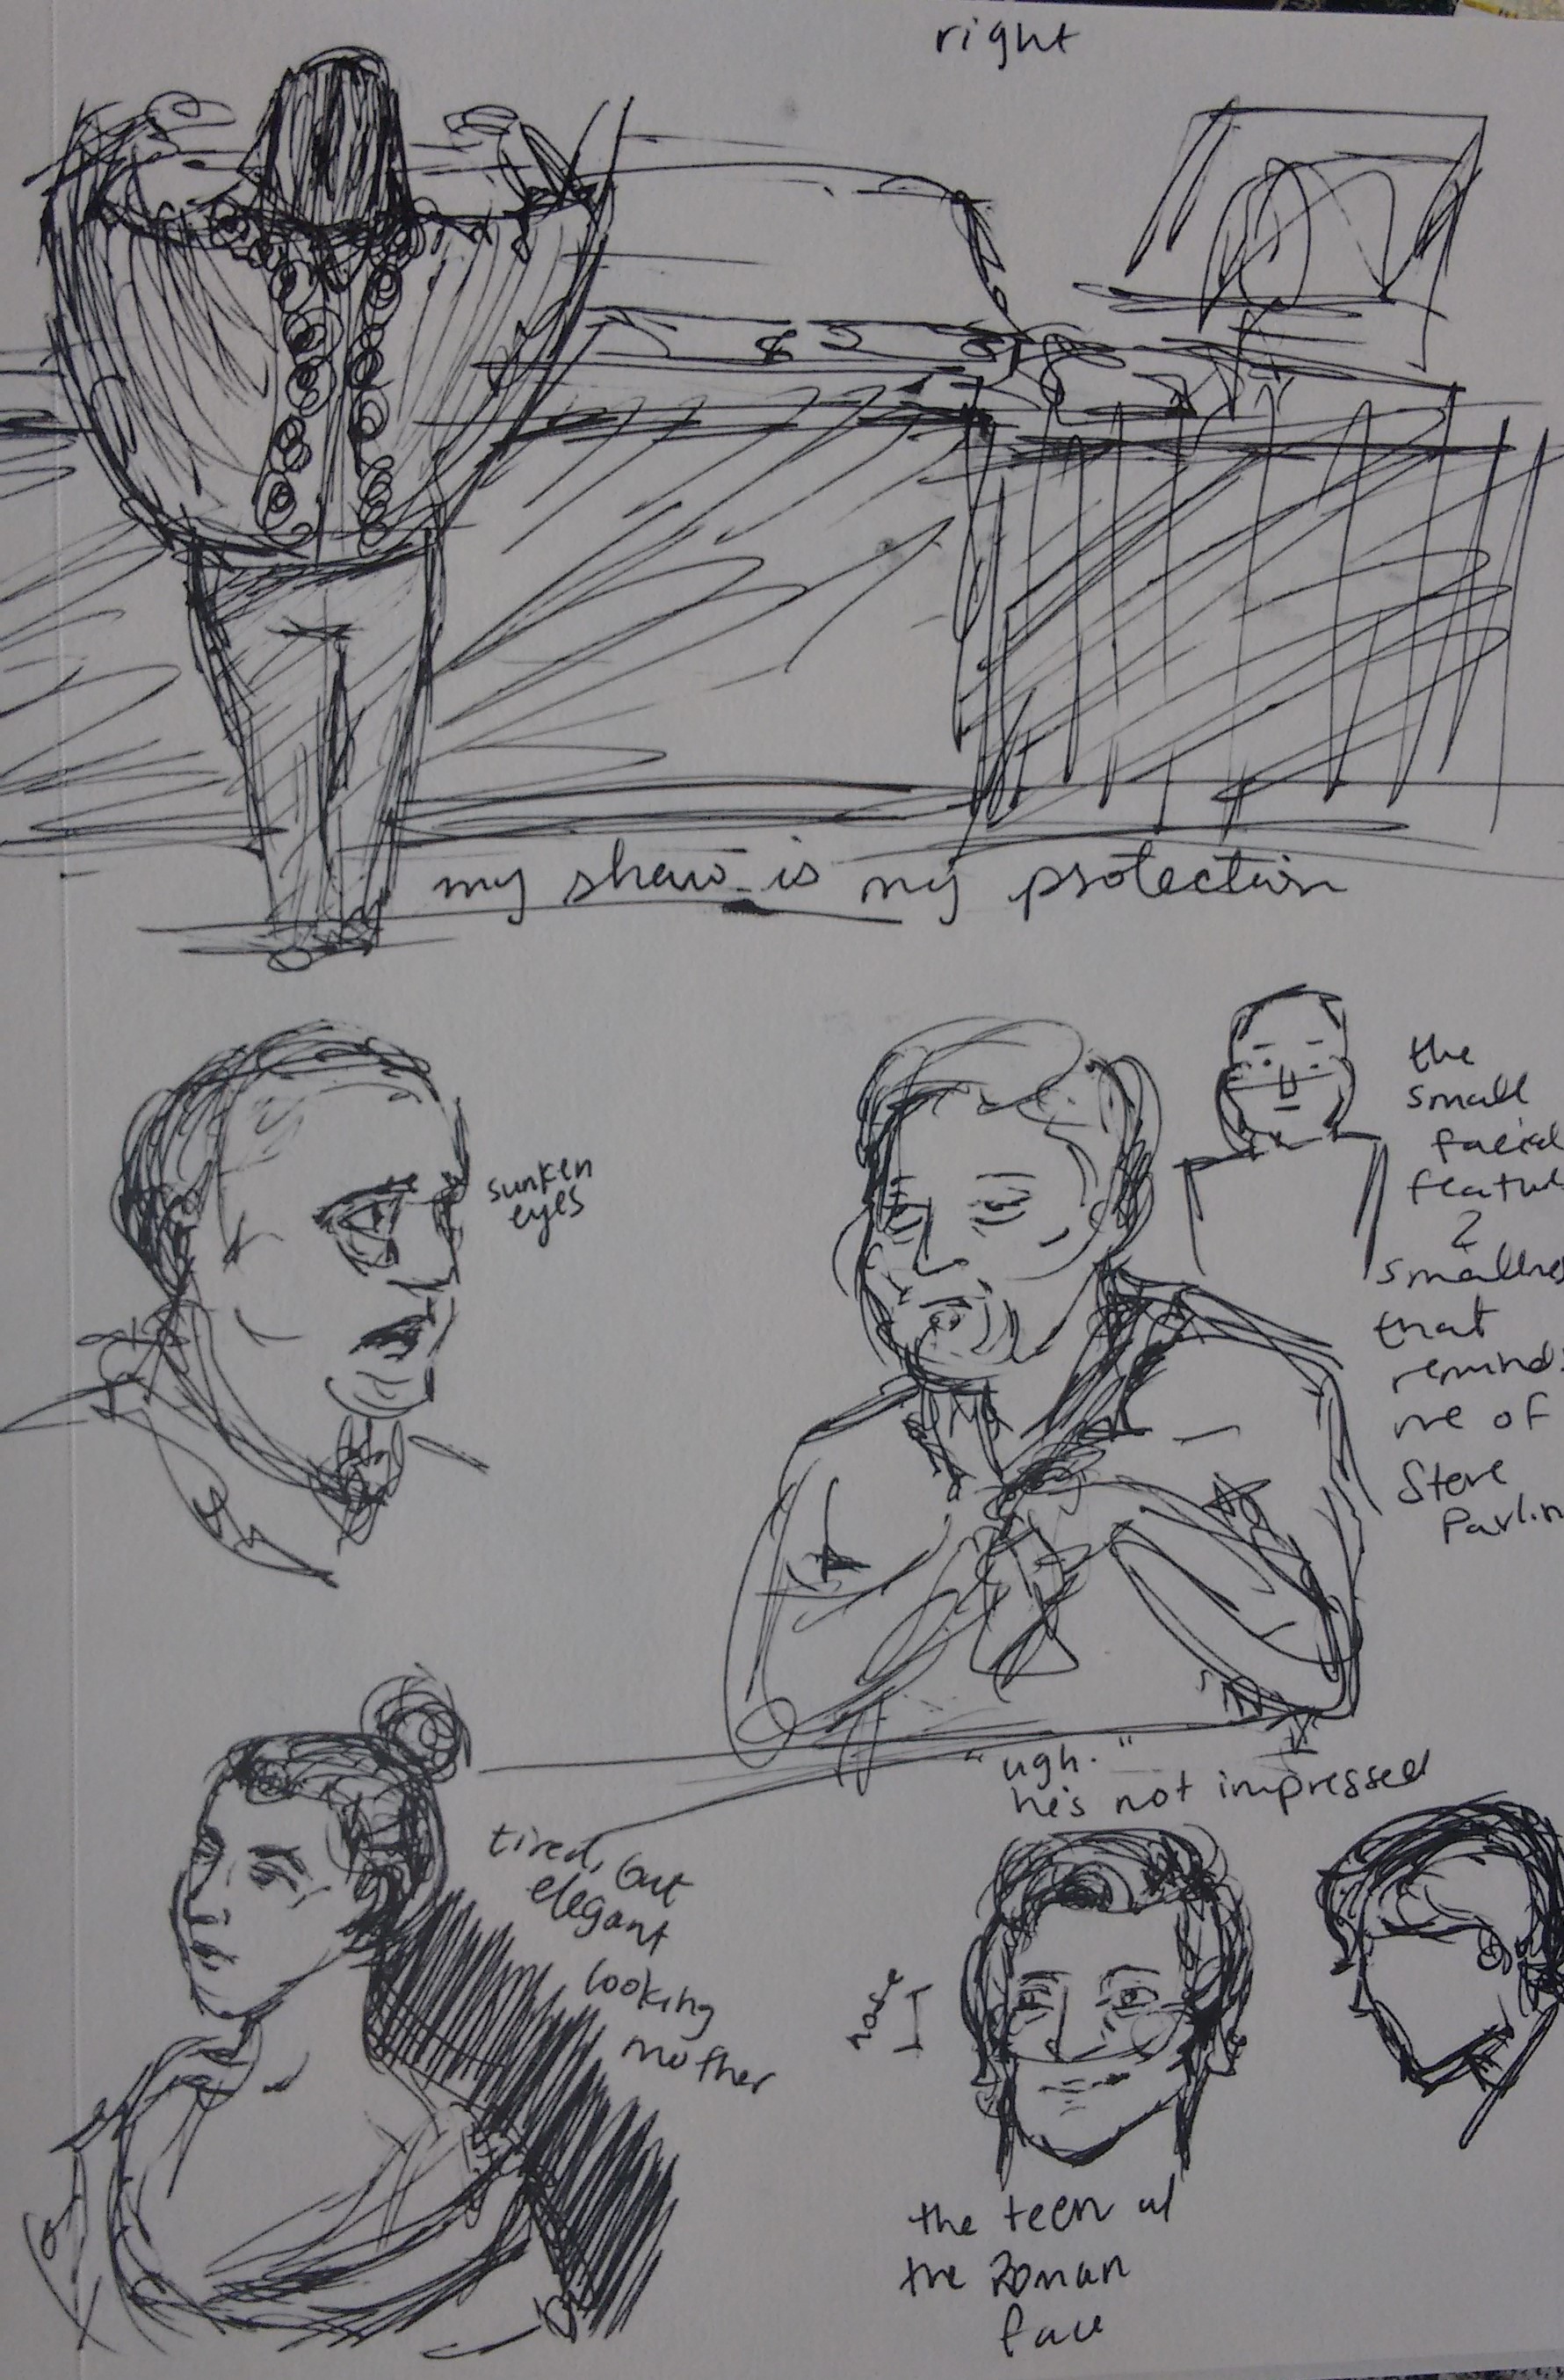 right
my shaw is my protection
sunken
eyes
the
small
facial
featur
&
smallnes
that
reminds
me of
Steve
Pavlin
"ugh."
he's not impressed
tired, but
elegant
looking
mother
nose
the teen w/
the Roman
face